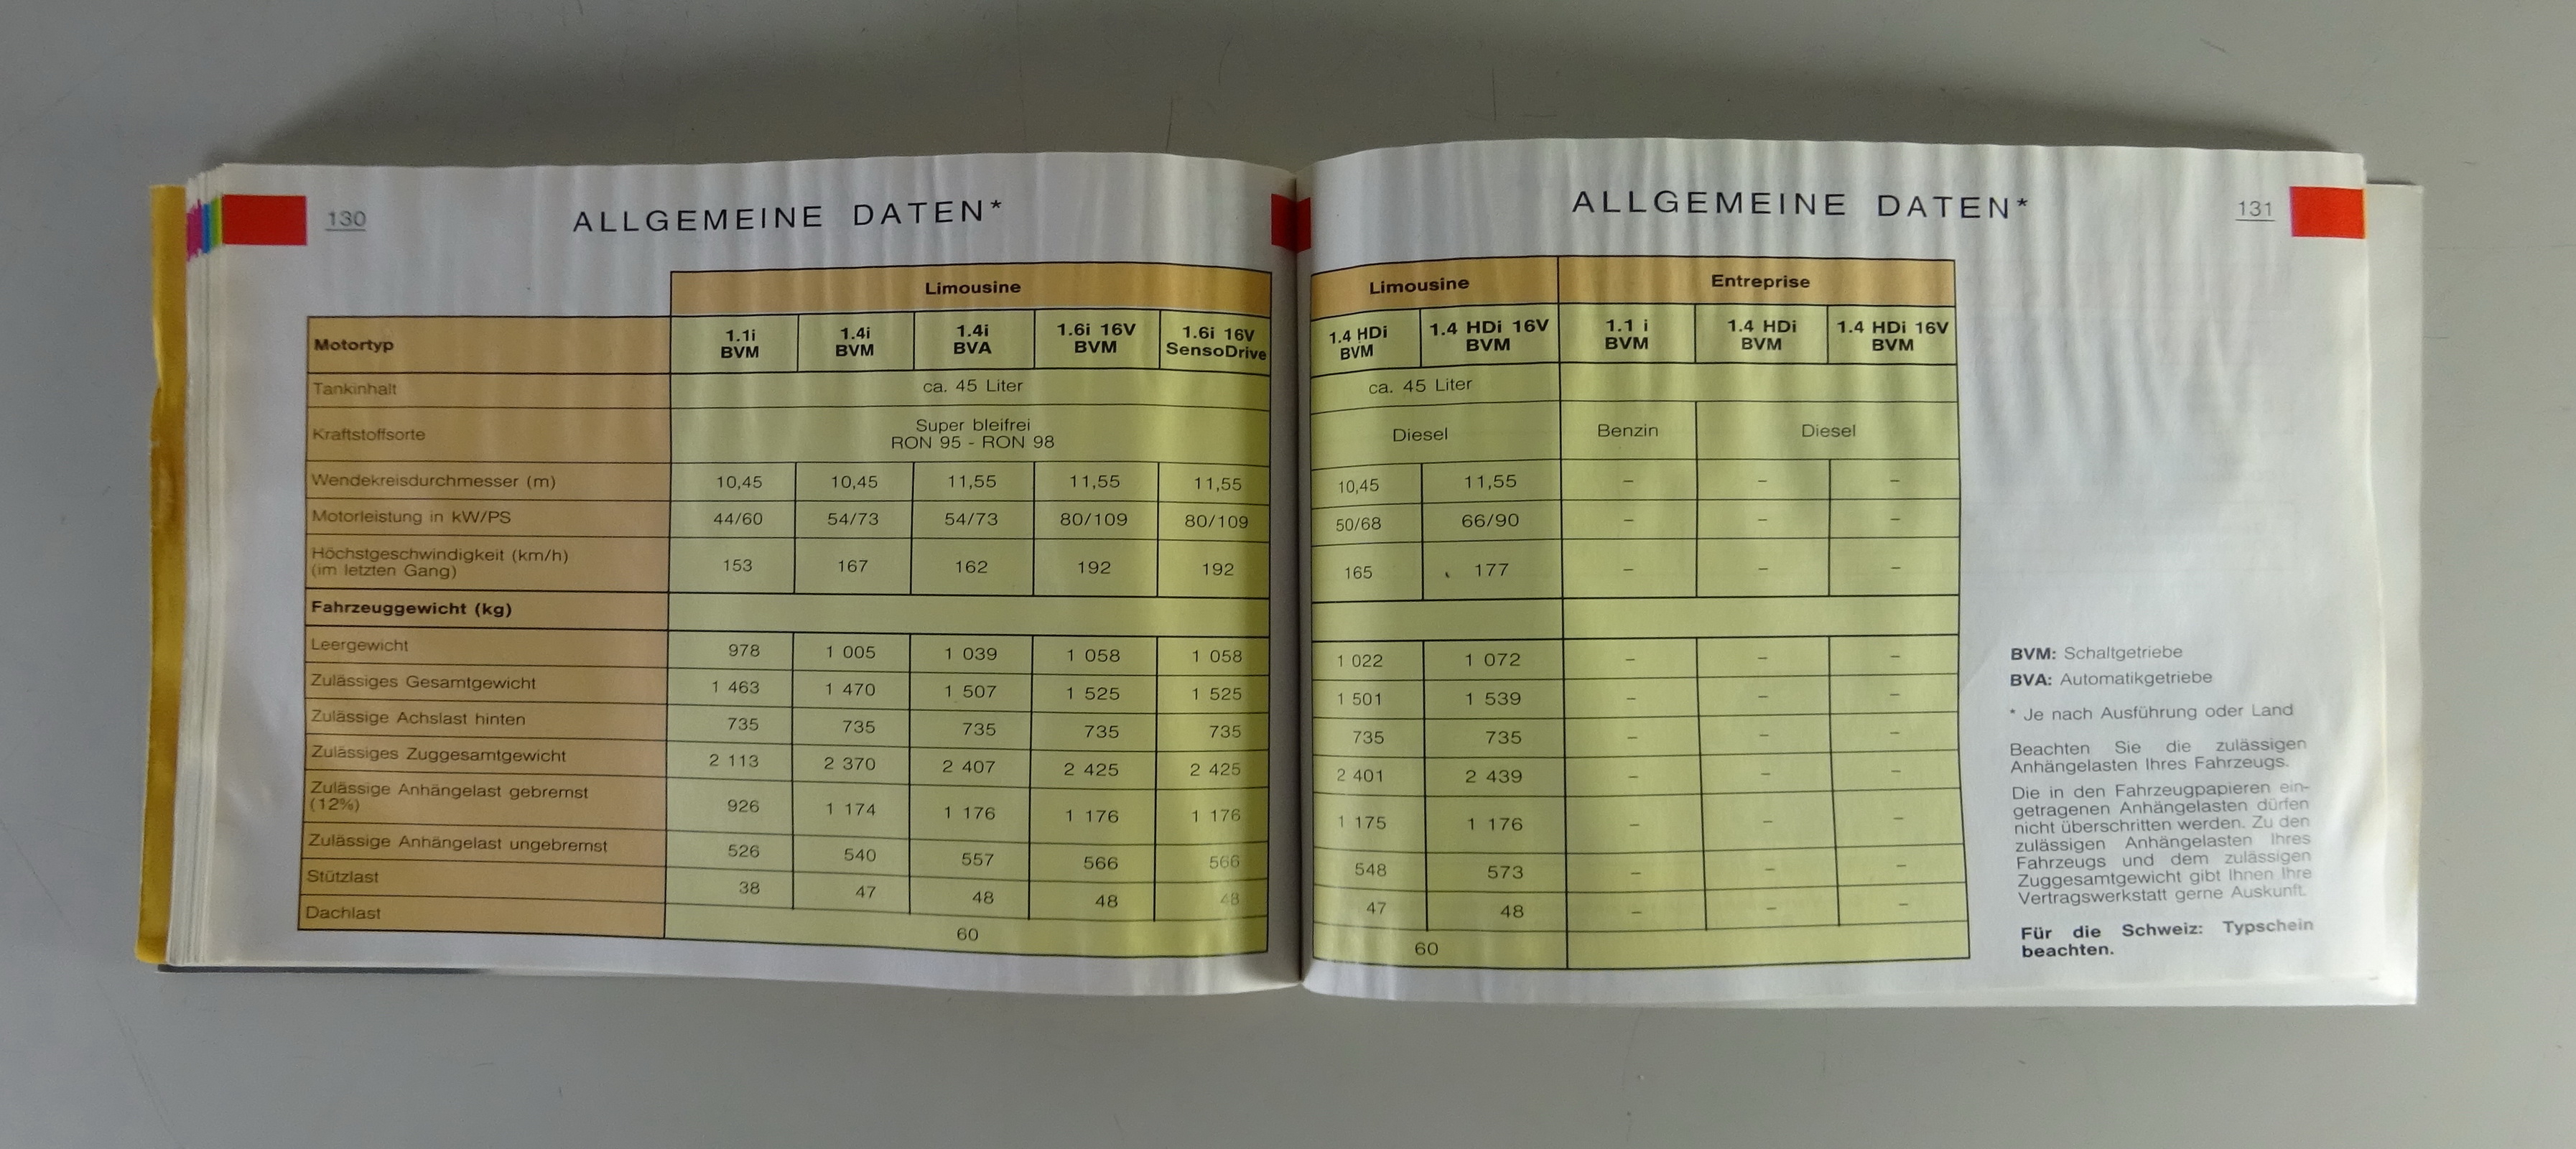 130
ALLGEMEINE DATEN*
Limousine
Motortyp 1.1i BVM 1.4i BVM 1.4i BVA 1.6i 16V BVM 1.6i 16V SensoDrive
Tankinhalt ca. 45 Liter
Kraftstoffsorte Super bleifrei RON 95 - RON 98
Wendekreisdurchmesser (m) 10,45 10,45 11,55 11,55 11,55
Motorleistung in kW/PS 44/60 54/73 54/73 80/109 80/109
Höchstgeschwindigkeit (km/h)
(im letzten Gang) 153 167 162 192 192
Fahrzeuggewicht (kg)
Leergewicht 978 1 005 1 039 1 058 1 058
Zulässiges Gesamtgewicht 1 463 1 470 1 507 1 525 1 525
Zulässige Achslast hinten 735 735 735 735 735
Zulässiges Zuggesamtgewicht 2 113 2 370 2 407 2 425 2 425
Zulässige Anhängelast gebremst
(12%) 926 1 174 1 176 1 176 1 176
Zulässige Anhängelast ungebremst 526 540 557 566 566
Stützlast 38 47 48 48 48
Dachlast 60
ALLGEMEINE DATEN*
131
Limousine Entreprise
1.4 HDi BVM 1.4 HDi 16V BVM 1.1 i BVM 1.4 HDi BVM 1.4 HDi 16V BVM
ca. 45 Liter
Diesel Benzin Diesel
10,45 11,55 – – –
50/68 66/90 – – –
165 177 – – –
1 022 1 072 – – –
1 501 1 539 – – –
735 735 – – –
2 401 2 439 – – –
1 175 1 176 – – –
548 573 – – –
47 48 – – –
60
BVM: Schaltgetriebe
BVA: Automatikgetriebe
* Je nach Ausführung oder Land
Beachten Sie die zulässigen
Anhängelasten Ihres Fahrzeugs.
Die in den Fahrzeugpapieren ein-
getragenen Anhängelasten dürfen
nicht überschritten werden. Zu den
zulässigen Anhängelasten Ihres
Fahrzeugs und dem zulässigen
Zuggesamtgewicht gibt Ihnen Ihre
Vertragswerkstatt gerne Auskunft.
Für die Schweiz: Typschein
beachten.